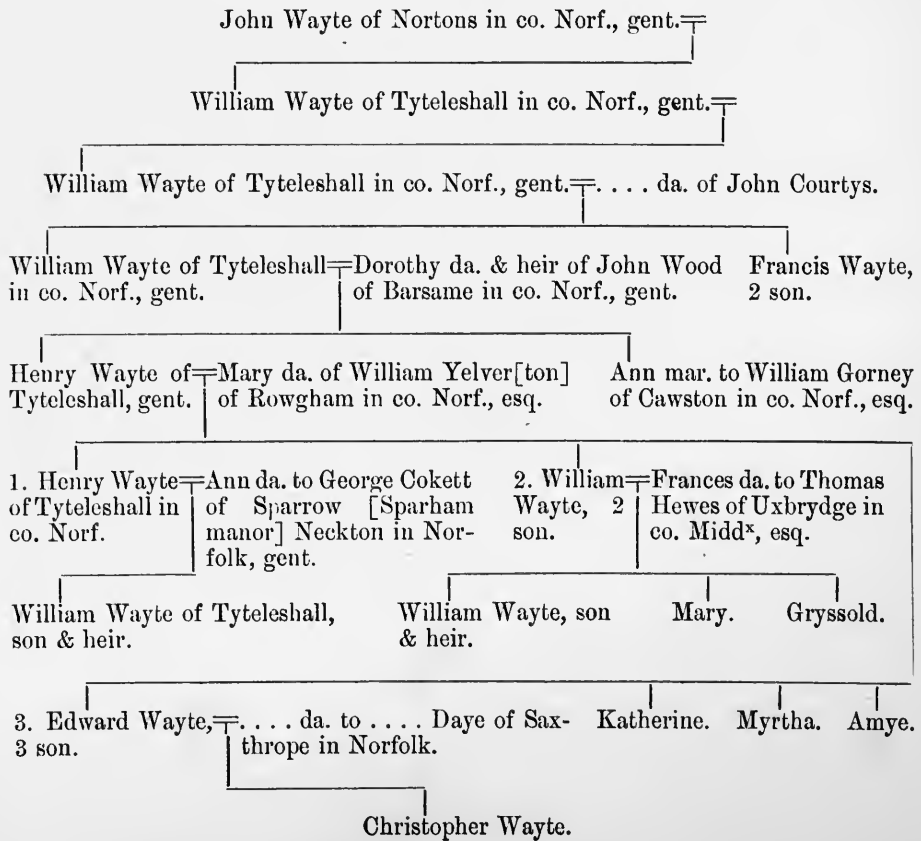 John Wayte of Nortons in co. Norf., gent.
William Wayte of Tyteleshall in co. Norf., gent.
William Wayte of Tyteleshall in co. Norf., gent. . . . . da. of John Courtys.
William Wayte of Tyteleshall
in co. Norf., gent.
Dorothy da. & heir of John Wood
of Barsame in co. Norf., gent.
Francis Wayte,
2 son.
Henry Wayte of
Tyteleshall, gent.
Mary da. of William Yelver[ton]
of Rowgham in co. Norf., esq.
Ann mar. to William Gorney
of Cawston in co. Norf., esq.
1. Henry Wayte
of Tyteleshall in
co. Norf.
Ann da. to George Cokett
of Sparrow [Sparham
manor] Neckton in Nor-
folk, gent.
2. William
Wayte, 2
son.
Frances da. to Thomas
Hewes of Uxbrydge in
co. Middˣ, esq.
William Wayte of Tyteleshall,
son & heir.
William Wayte, son
& heir.
Mary.
Gryssold.
3. Edward Wayte,
3 son.
. . . . da. to . . . . Daye of Sax-
thrope in Norfolk.
Katherine.
Myrtha.
Amye.
Christopher Wayte.